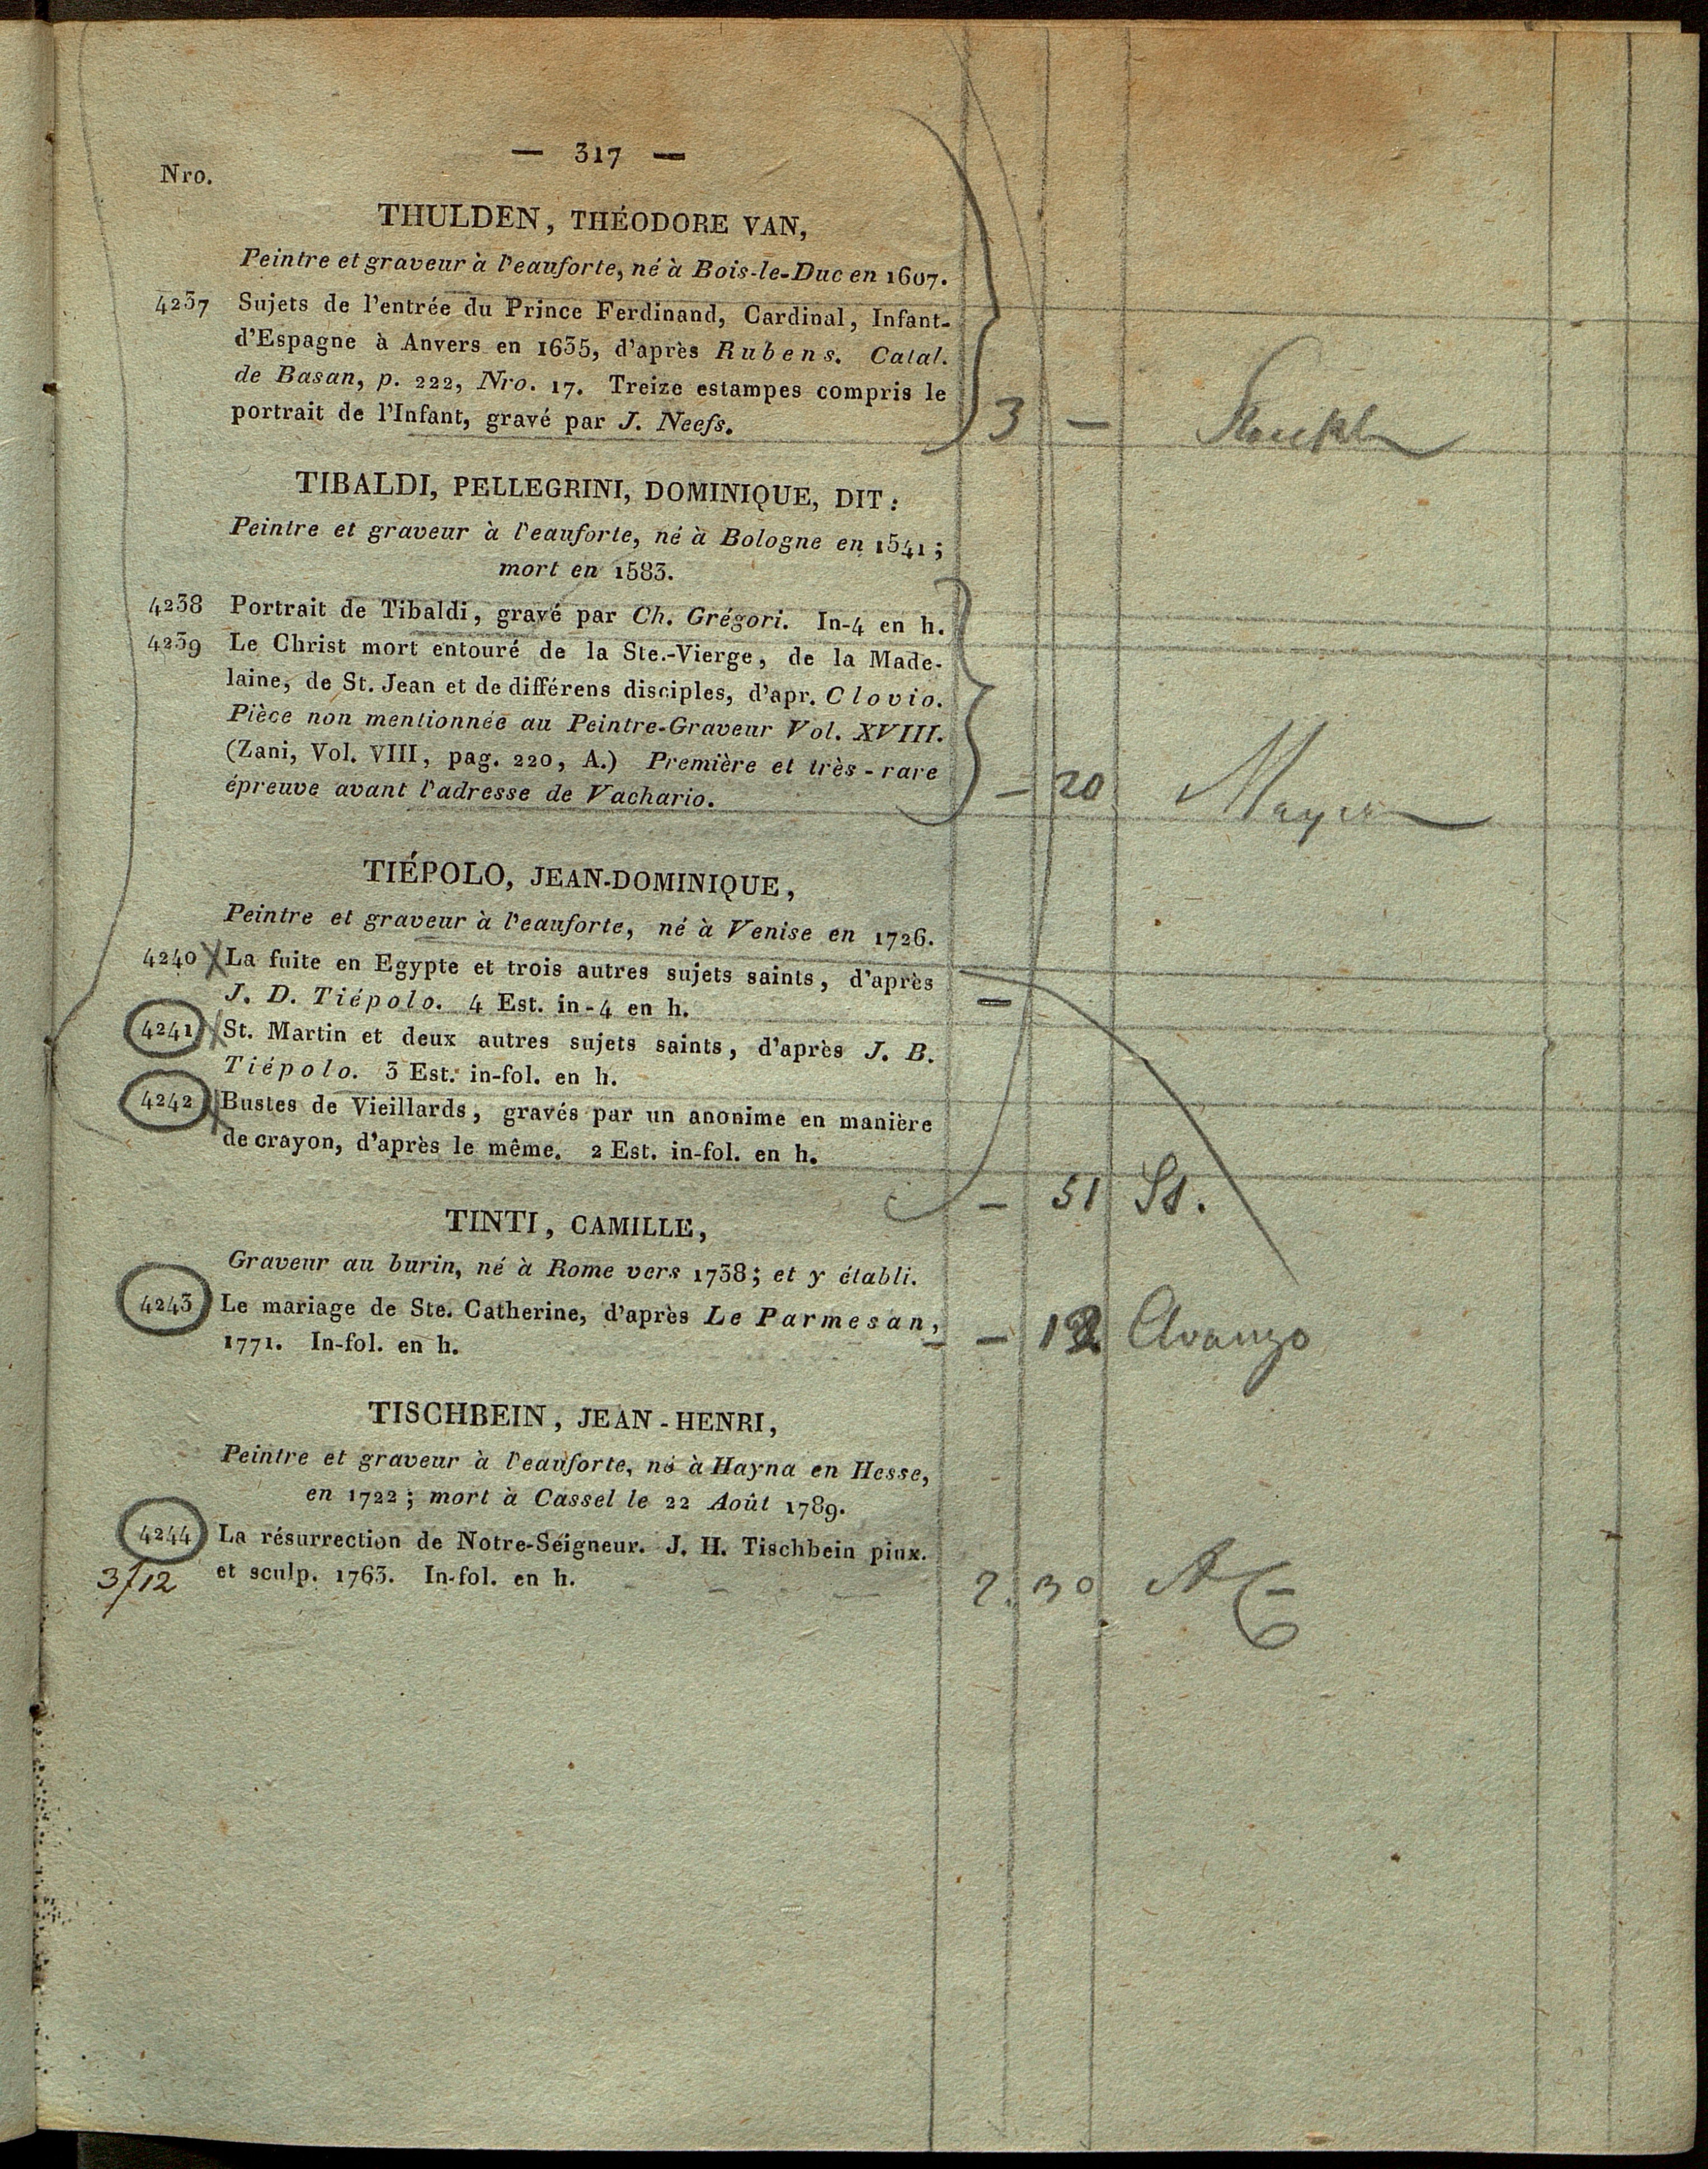 — 317 —
Nro.
THULDEN, THÉODORE VAN,
Peintre et graveur à l'eauforte, né à Bois-le-Duc en 1607.
4237 Sujets de l'entrée du Prince Ferdinand, Cardinal, Infant-
d'Espagne à Anvers en 1635, d'après Rubens. Catal.
de Basan, p. 222, Nro. 17. Treize estampes compris le
portrait de l'Infant, gravé par J. Neefs.
3 —
TIBALDI, PELLEGRINI, DOMINIQUE, DIT:
Peintre et graveur à l'eauforte, né à Bologne en 1541;
mort en 1583.
4238 Portrait de Tibaldi, gravé par Ch. Grégori. In-4 en h.
4239 Le Christ mort entouré de la Ste.-Vierge, de la Made-
laine, de St. Jean et de différens disciples, d'apr. Clovio.
Pièce non mentionnée au Peintre-Graveur Vol. XVIII.
(Zani, Vol. VIII, pag. 220, A.) Première et très-rare
épreuve avant l'adresse de Vachario.
— 20 Mayer
TIÉPOLO, JEAN-DOMINIQUE,
Peintre et graveur à l'eauforte, né à Venise en 1726.
4240 La fuite en Egypte et trois autres sujets saints, d'après
J. D. Tiépolo. 4 Est. in-4 en h.
—
4241 St. Martin et deux autres sujets saints, d'après J. B.
Tiépolo. 3 Est. in-fol. en h.
4242 Bustes de Vieillards, gravés par un anonime en manière
de crayon, d'après le même. 2 Est. in-fol. en h.
— 51 St.
TINTI, CAMILLE,
Graveur au burin, né à Rome vers 1738; et y établi.
4243 Le mariage de Ste. Catherine, d'après Le Parmesan,
1771. In-fol. en h.
— 12 Avanzo
TISCHBEIN, JEAN-HENRI,
Peintre et graveur à l'eauforte, né à Hayna en Hesse,
en 1722; mort à Cassel le 22 Août 1789.
4244 La résurrection de Notre-Seigneur. J. H. Tischbein pinx.
et sculp. 1763. In-fol. en h.
3/12
2. 30